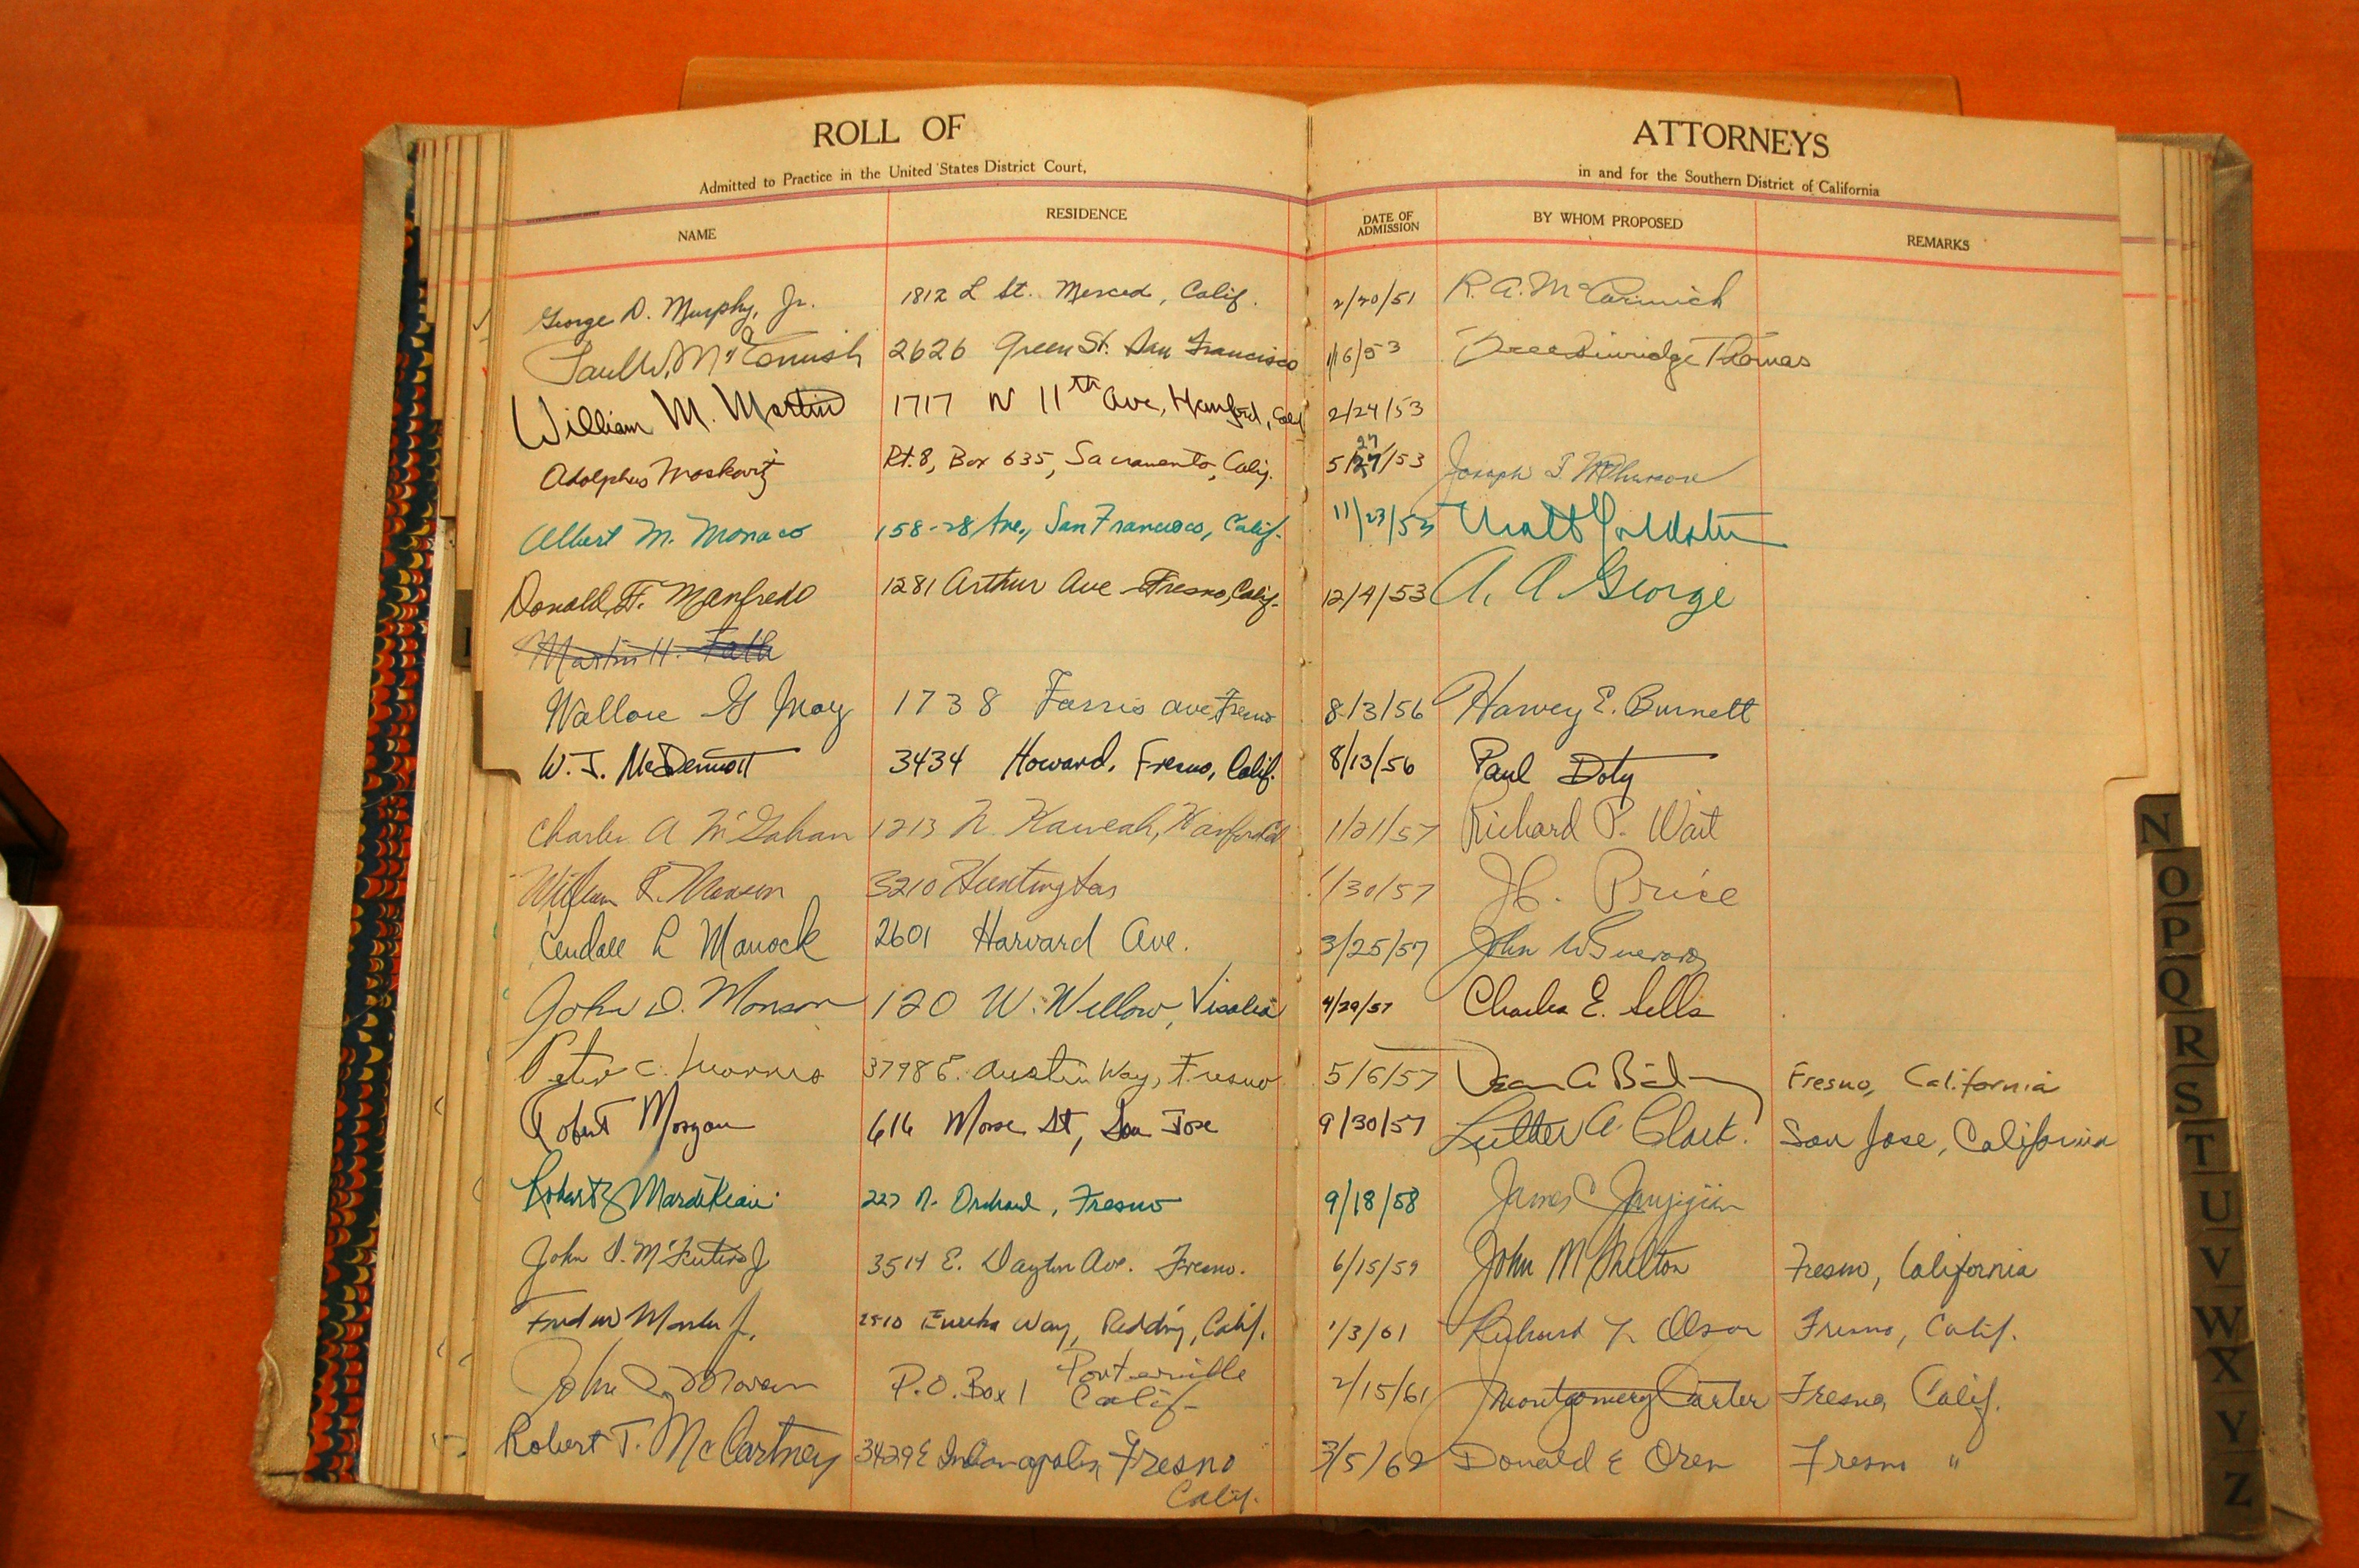 ROLL OF ATTORNEYS
Admitted to Practice in the United States District Court, in and for the Southern District of California
NAME RESIDENCE DATE OF ADMISSION BY WHOM PROPOSED REMARKS
George D. Murphy, Jr. 1812 L St. Merced, Calif. 2/20/51 R. A. McCormick
Paul W. 2626 Green St. San Francisco 1/16/53 Thomas
William M. Martin 1717 N 11th Ave, Hanford, Calif 2/24/53
Adolphus Moskovitz Rt. 8, Box 635, Sacramento, Calif. 5/27/53 27 Joseph
Albert M. Monaco 158-28 Ave., San Francisco, Calif. 11/23/53 Matt Goldstein
Donald F. Manfredo 1281 Arthur Ave Fresno, Calif. 12/4/53 A. A George
Martin H.
Wallace G May 1738 Farris ave, Fresno 8/3/56 Harvey E. Burnett
W. J. McDermott 3434 Howard, Fresno, Calif. 8/13/56 Paul Doty
Charles A McGahan 1213 N. Kaweah, Hanford 1/21/57 Richard P. Wait
William 3210 Huntington 1/30/57 Price
Kendall L Manock 2601 Harvard Ave. 3/25/57 John W
John D. Monson 120 W. Willow, Visalia 4/29/57 Charles E. Sells
Peter C. 3798 E. Austin Way, Fresno 5/6/57 A Fresno, California
Robert Morgan 616 Morse St, San Jose 9/30/57 Luther A. Clark. San Jose, California
Robert Mardikian 227 N. Orchard, Fresno 9/18/58 James C Janjigian
John 3514 E. Dayton Ave. Fresno. 6/15/59 John M Shelton Fresno, California
Fred W Jr. Eureka Way, Redding, Calif. 1/3/61 Richard Olson Fresno, Calif.
John Moran P.O. Box 1 Porterville Calif- 2/15/61 Montgomery Carter Fresno, Calif.
Robert T. McCartney 3429 E Indianapolis, Fresno 3/5/62 Donald E Oren Fresno "
Calif.
N
O
P
Q
R
S
T
U
V
W
X
Y
Z